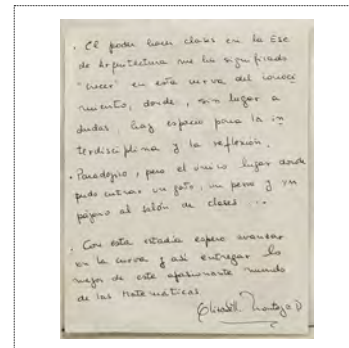 . El poder hacer clases en la Esc
de Arquitectura me ha significado
"crecer" en esta curva del conoci
miento, donde, sin lugar a
dudas, hay espacio para la in
terdisciplina y la reflexión.
. Paradojico, pero el único lugar donde
pudo entrar un gato, un perro y un
pájaro al salón de clases ..
. Con esta estadía espero avanzar
en la curva y así entregar lo
mejor de este apasionante mundo
de las Matemáticas.